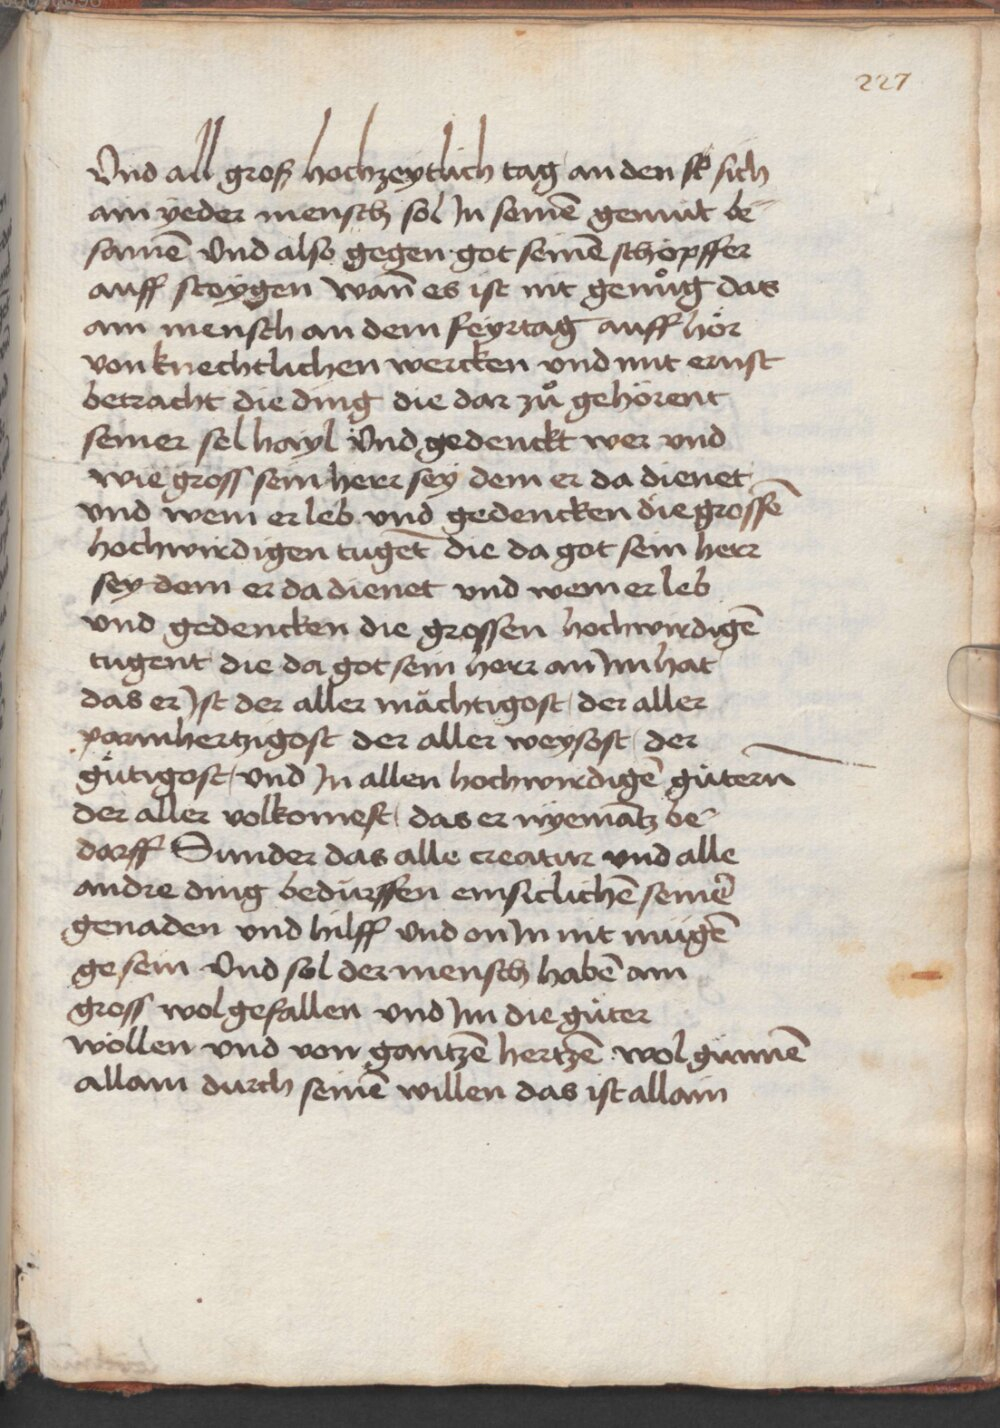 227
Vnd all groß hochzeytlich tag an den sich
ain yeder mensch sol Jn seinē gemüt be-
samē Vnd also gegen got seinē schöpffer
auff steygen wan̄ es ist nit genůg das
ain mensch an dem feyrtag auff hör
von knechtlichen wercken vnd mit ernst
betracht die ding die dar zů gehörent
seiner sel hayl Vnd gedenckt wer vnd
wie gross sein herr sey dem er da dienet
vnd wem er leb vnd gedencken die grossē
hochwirdigen tuget die da got sein herr
sey dem er da dienet vnd wem er leb
vnd gedencken die grossen hochwirdigē
tugent die da got sein herr an Jm hat
das er Jst der aller mächtigost der aller
parmhertzigost der aller weysost der
gütigost vnd Jn allen hochwirdigē gütern
der aller volkomest das er nyemātz be-
dorff Sunder das alle creatur vnd alle
andre ding bedürffen einsiclichē seiner
genaden vnd hilff vnd on Jn nit mügē
gesein Vnd sol der mensch habē ain
gross wolgefallen vnd Jm die güter
wöllen vnd von gantzē hertzē wol günnē
allain durch seinē willen das ist allain